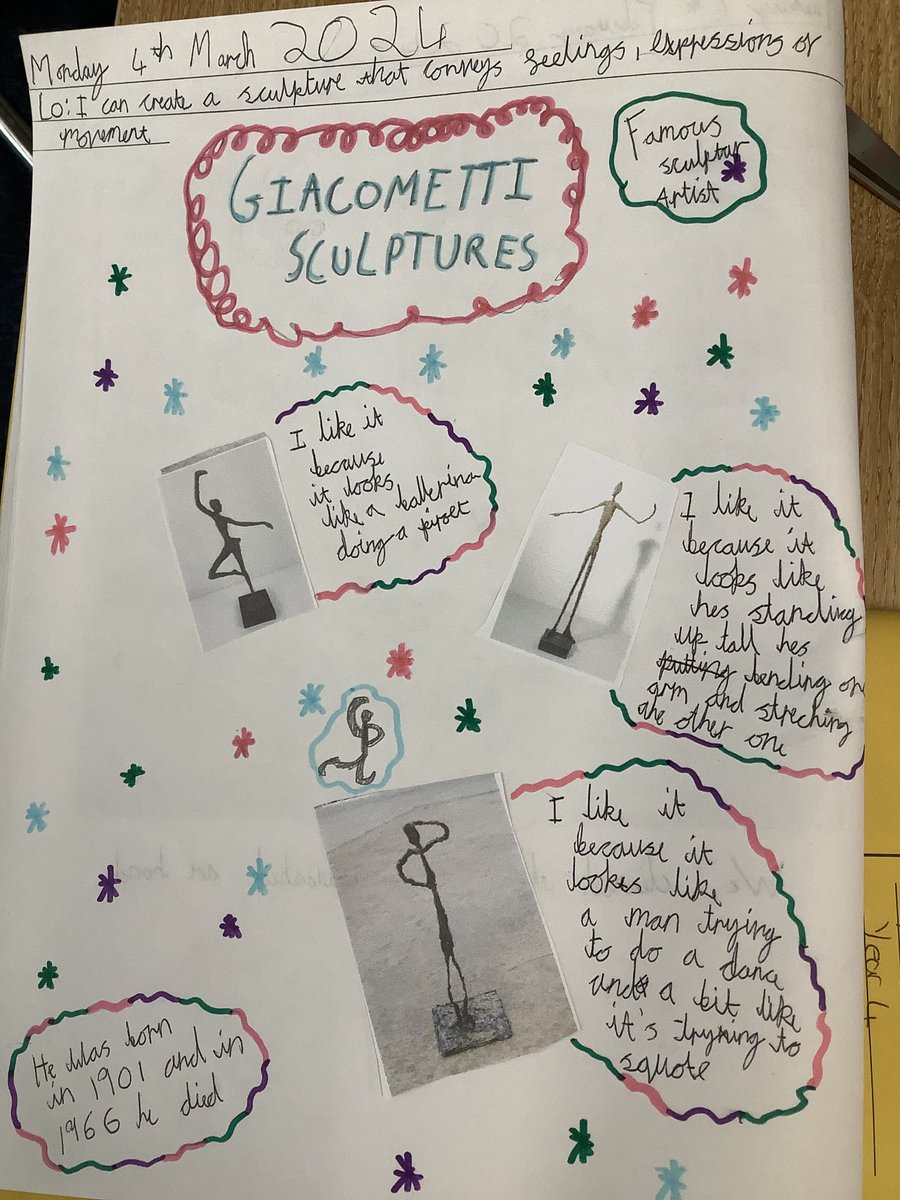 Monday 4th March 2024
Lo: I can create a sculpture that conveys feelings, expressions or
movement
GIACOMETTI
SCULPTURES
Famous
sculptur
Artist
I like it
because
it looks
like a ballerina
doing a
I like it
because it
looks like
hes standing
up tall hes
putting bending one
arm and streching
the other one
I like it
because it
looks like
a man trying
to do a dance
and a bit like
it's trying to
squote
He was born
in 1901 and in
1966 he died
Year 4